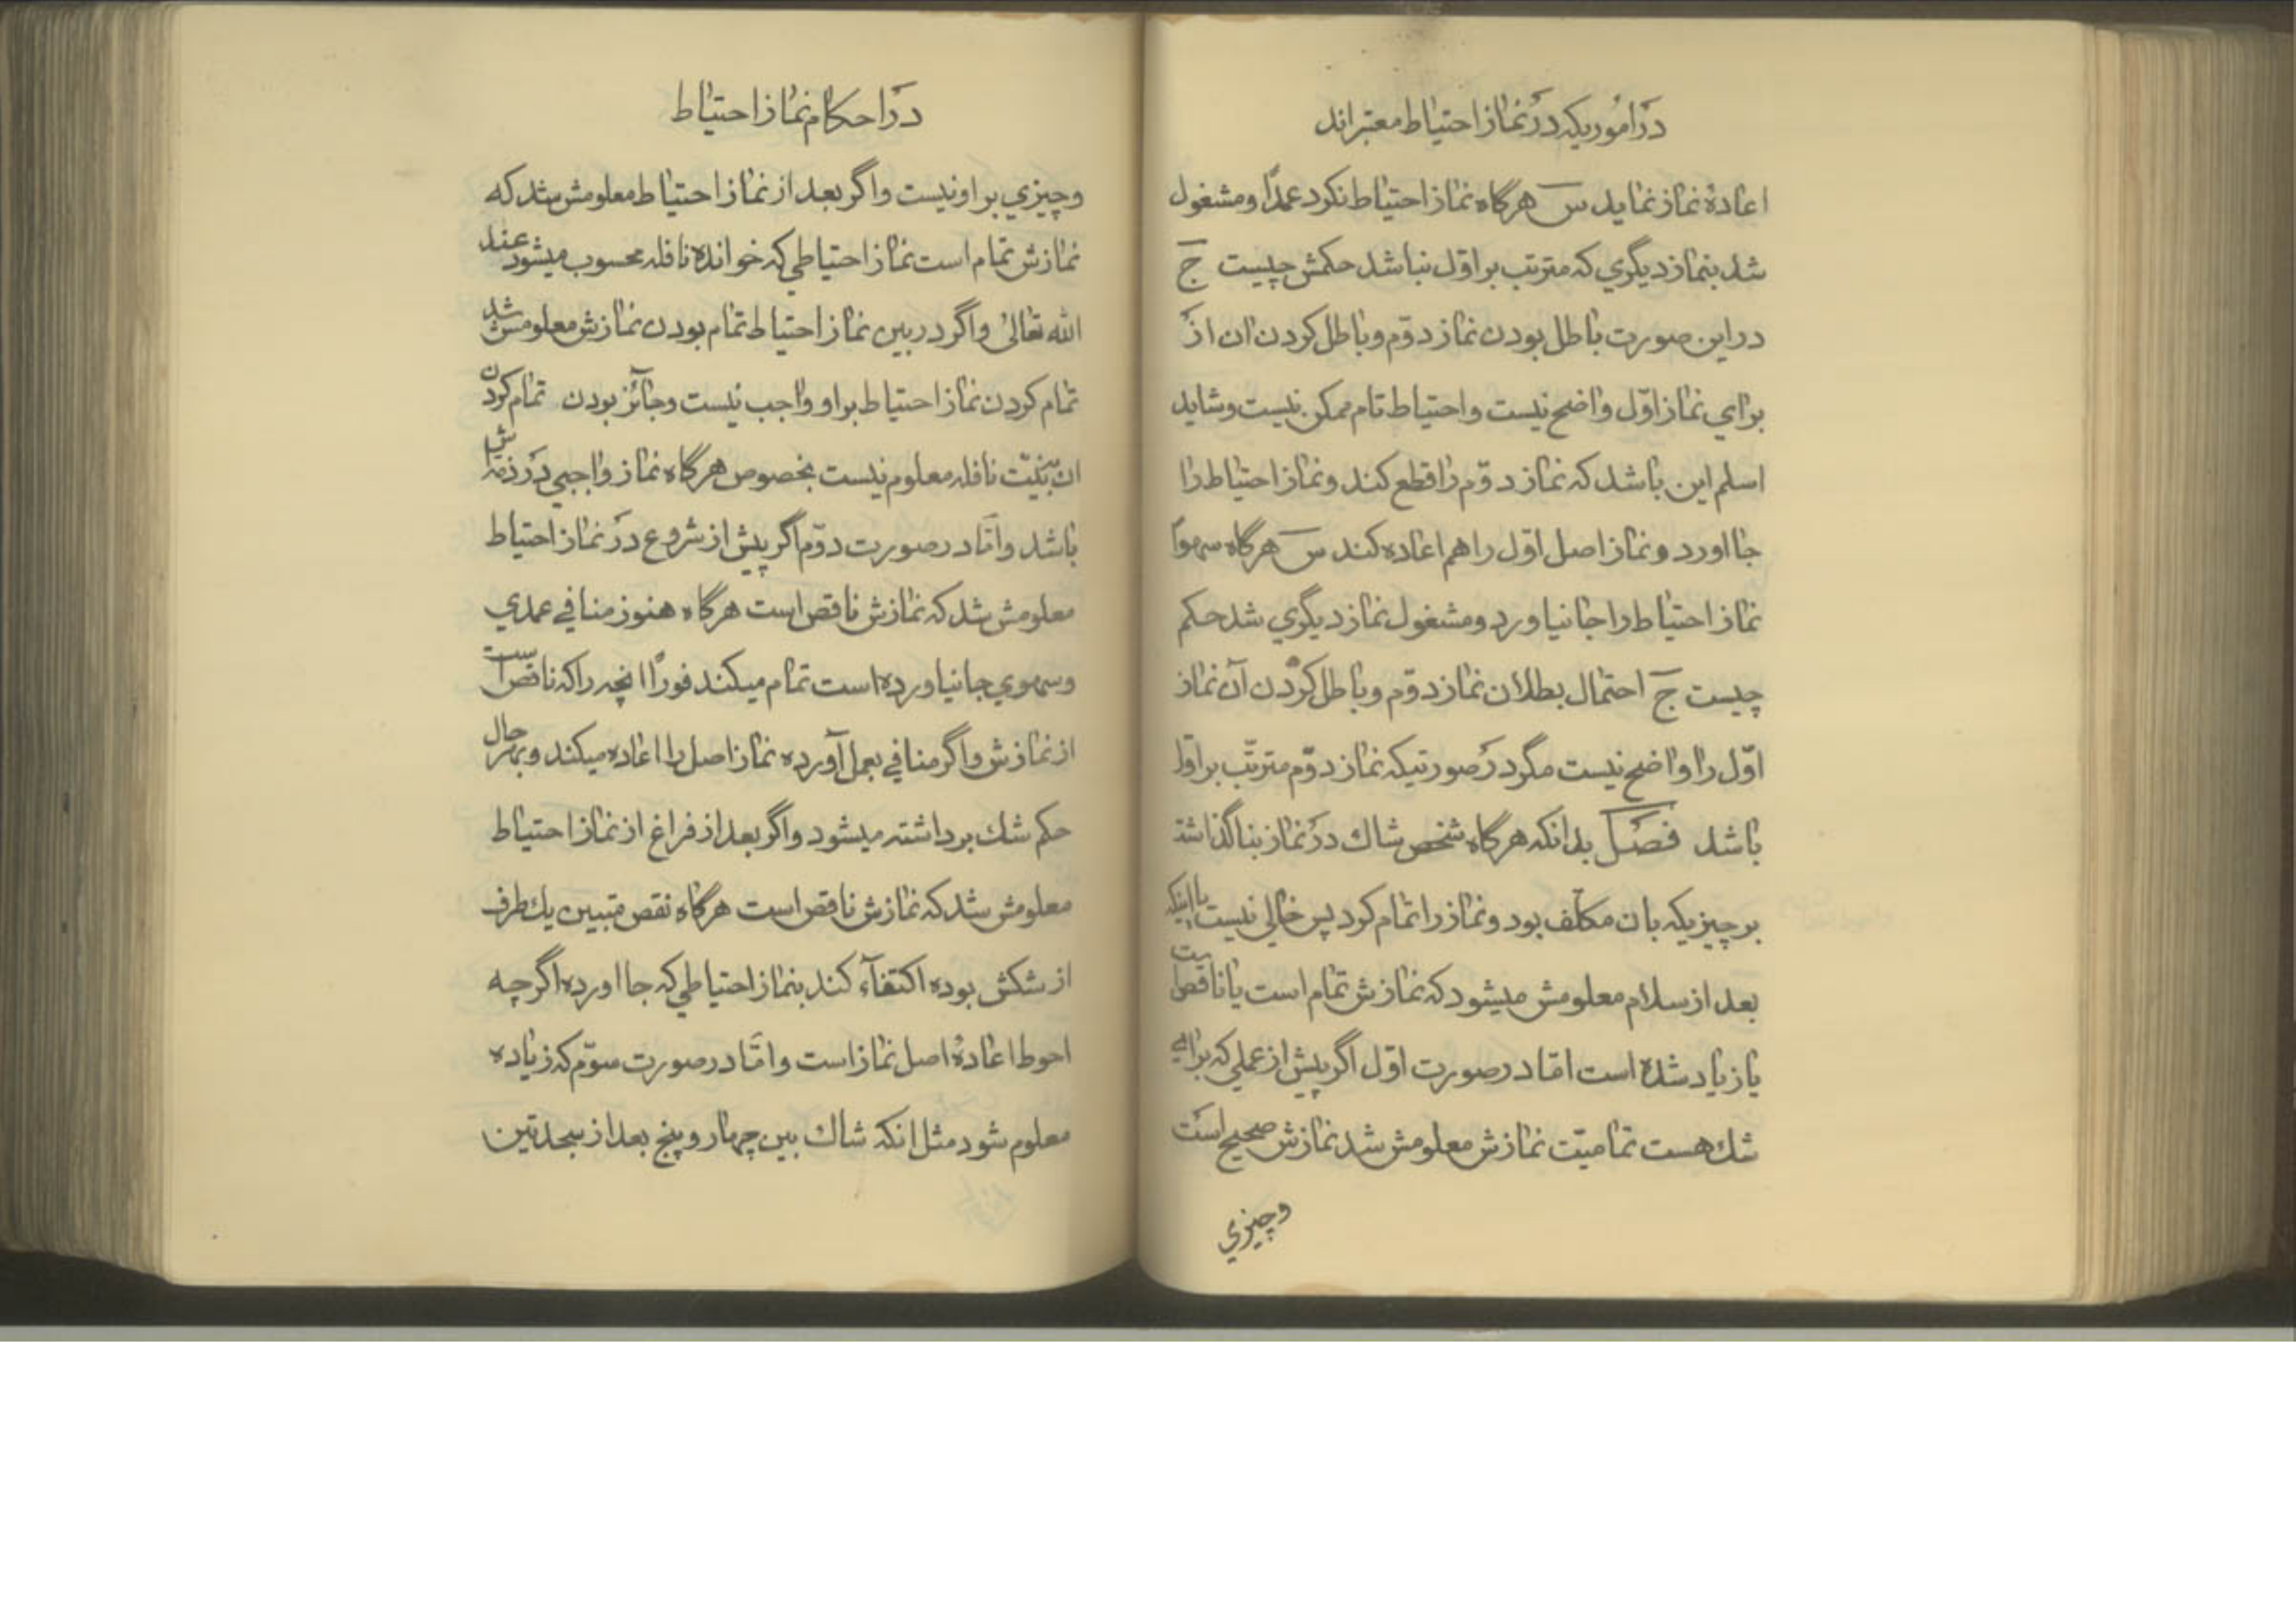 در اموریکه در نماز احتیاط معتبراند
اعادهٔ نماز نماید س هرگاه نماز احتیاط نکرد عمدًا و مشغول
شد بنماز دیگري که مترتب بر اوّل نباشد حکمش چیست ج
در این صورت باطل بودن نماز دوّم و باطل کردن ان از
براي نماز اوّل واضح نیست و احتیاط تام ممکن نیست و شاید
اسلم این باشد که نماز دوّم را قطع کند و نماز احتیاط را
جا اورد و نماز اصل اوّل را هم اعاده کند س هرگاه سهوًا
نماز احتیاط را جا نیاورد و مشغول نماز دیگري شد حکم
چیست ج احتمال بطلان نماز دوّم و باطل کردن آن نماز
اوّل را واضح نیست مگر در صورتیکه نماز دوّم مترتّب بر اوّل
باشد فصل بدانکه هرگاه شخص شاك در نماز بنا گذاشته
بر چیزیکه بان مکلّف بود و نماز را تمام کرد پس خالي نیست یا اینکه
بعد از سلام معلومش میشود که نمازش تمام است یا ناقص است
یا زیاد شده است امّا در صورت اوّل اگر پیش از عملي که براي
شك هست تمامیّت نمازش معلومش شد نمازش صحیح است
وچیزي
در احکام نماز احتیاط
وچیزي بر او نیست و اگر بعد از نماز احتیاط معلومش شد که
نمازش تمام است نماز احتیاطي که خوانده نافله محسوب میشود عند
الله تعالیٰ و اگر در بین نماز احتیاط تمام بودن نمازش معلومش شد
تمام کردن نماز احتیاط بر او واجب نیست و جائز بودن تمام کردن
ان بنیّت نافله معلوم نیست بخصوص هرگاه نماز واجبي در ذمه اش
باشد و امّا در صورت دوّم اگر پیش از شروع در نماز احتیاط
معلومش شد که نمازش ناقص است هرگاه هنوز منافي عمدي
و سهوي جا نیاورده است تمام میکند فورًا انچه را که ناقص است
از نمازش و اگر منافي بعمل آورده نماز اصل را اعاده میکند و بهر حال
حکم شك برداشته میشود و اگر بعد از فراغ از نماز احتیاط
معلومش شد که نمازش ناقص است هرگاه نقص متبیین یك طرف
از شکش بوده اکتفآء کند بنماز احتیاطي که جا اورده اگرچه
احوط اعادهٔ اصل نماز است و امّا در صورت سوّم که زیاده
معلوم شود مثل انکه شاك بین چهار و پنج بعد از سجدتین